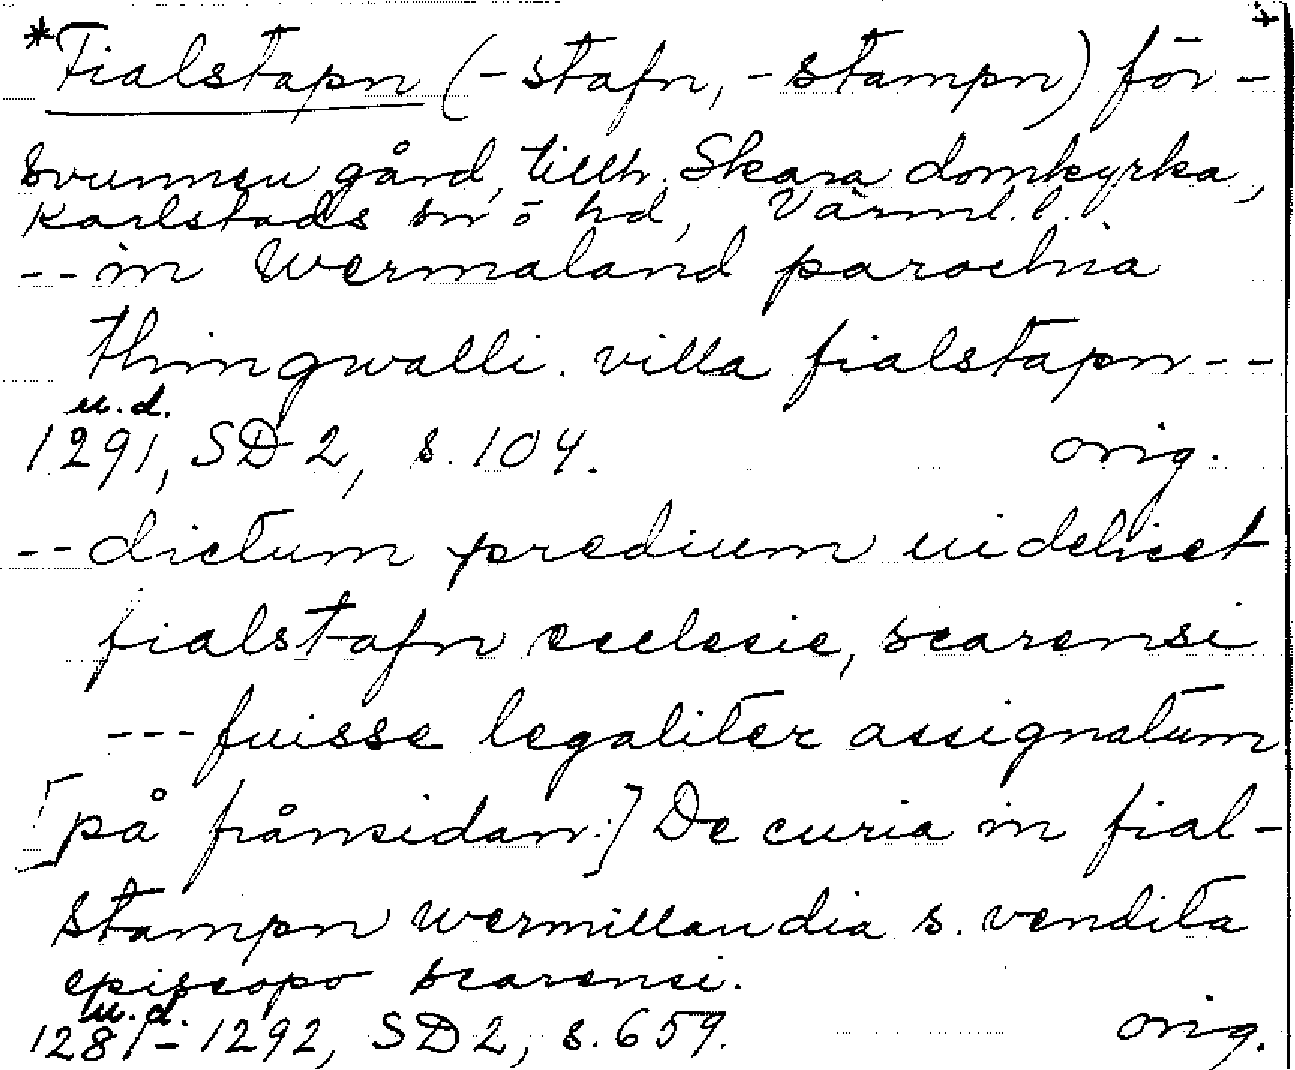 *Fialstapn (-stafn, -stampn) för-
svunnen gård, tillh. Skara domkyrka,
Karlstads sn o hd, Värml. l.
-- in Wermaland parochia
thingwalli. villa fialstapn --
u.d.
1291, SD 2, s. 104. orig.
-- dictum predium uidelicet
fialstafn ecclesie, scarensi
--- fuisse legaliter assignatum
[på frånsidan:] De curia in fial-
stampn wermillandia s. vendita
episcopo scarensi.
u.d.
1281-1292, SD 2, s. 659. orig.